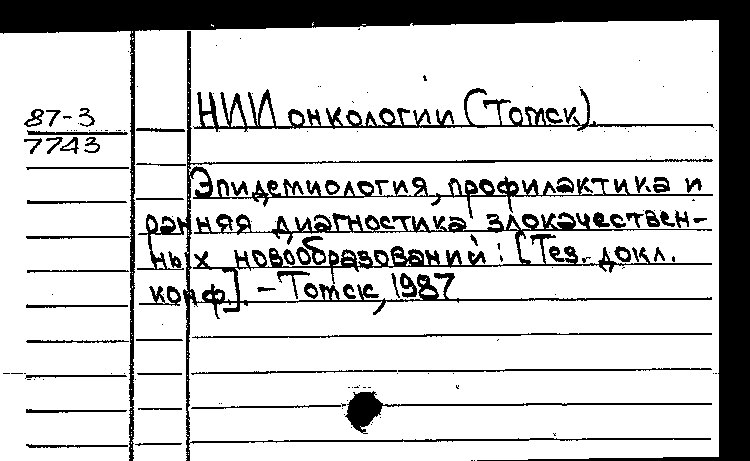 87-3
7743
НИИ онкологии (Томск).
Эпидемиология, профилактика и
ранняя диагностика злокачествен-
ных новообразований: [Тез. докл.
конф.]. - Томск, 1987